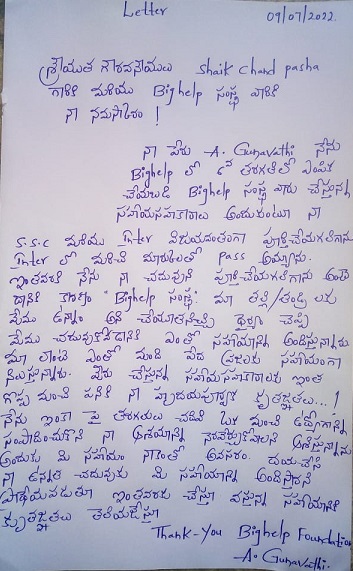 Letter
09/07/2022.
శ్రీయుత గౌరవనీయులు Shaik Chand pasha
గారికి మరియు Bighelp సంస్థ వారికి
నా నమస్కారం !
నా పేరు A. Gunavathi నేను
Bighelp లో 6వ తరగతిలో ఎంపిక
చేయబడి Bighelp సంస్థ వారు చేస్తున్న
సహాయసహకారాలు అందుకుంటూ నా
S.S.C మరియు Inter విజయవంతంగా పూర్తిచేయగలిగాను
Inter లో మంచి మార్కులతో pass అయ్యాను.
ఇంతవరకు నేను నా చదువుని పూర్తి చేయగలిగాను అంటే
దానికి కారణం "Bighelp సంస్థ". మా తల్లి/తండ్రి లకు
మేము ఉన్నాం అని చేయూతనిచ్చి ధైర్యం చెప్పి
మేము చదువుకోడానికి ఎంతో సహాయాన్ని అందిస్తున్నారు
మా లాంటి ఎంతో మంది పేద ప్రజలకు సహాయంగా
నిలుస్తున్నారు. మీరు చేస్తున్న సహాయసహకారాలకు ఇంత
గొప్ప మంచి పనికి నా హృదయపూర్వక కృతజ్ఞతలు...!
నేను ఇంకా పై తరగతులు చదివి ఒక మంచి ఉద్యోగాన్ని
సంపాదించుకొని నా ఆశయాన్ని నెరవేర్చుకోవాలని ఆశిస్తున్నాను
అందుకు మీ సహాయం నాకెంతో అవసరం. దయచేసి
నా ఉన్నత చదువుకు మీ సహాయాన్ని అందిస్తారని
ప్రాధేయపడుతూ ఇంతవరకు చేస్తూ వస్తున్న సహాయానికి
కృతజ్ఞతలు తెలియజేస్తూ
Thank-You Bighelp Foundation
-A. Gunavathi.